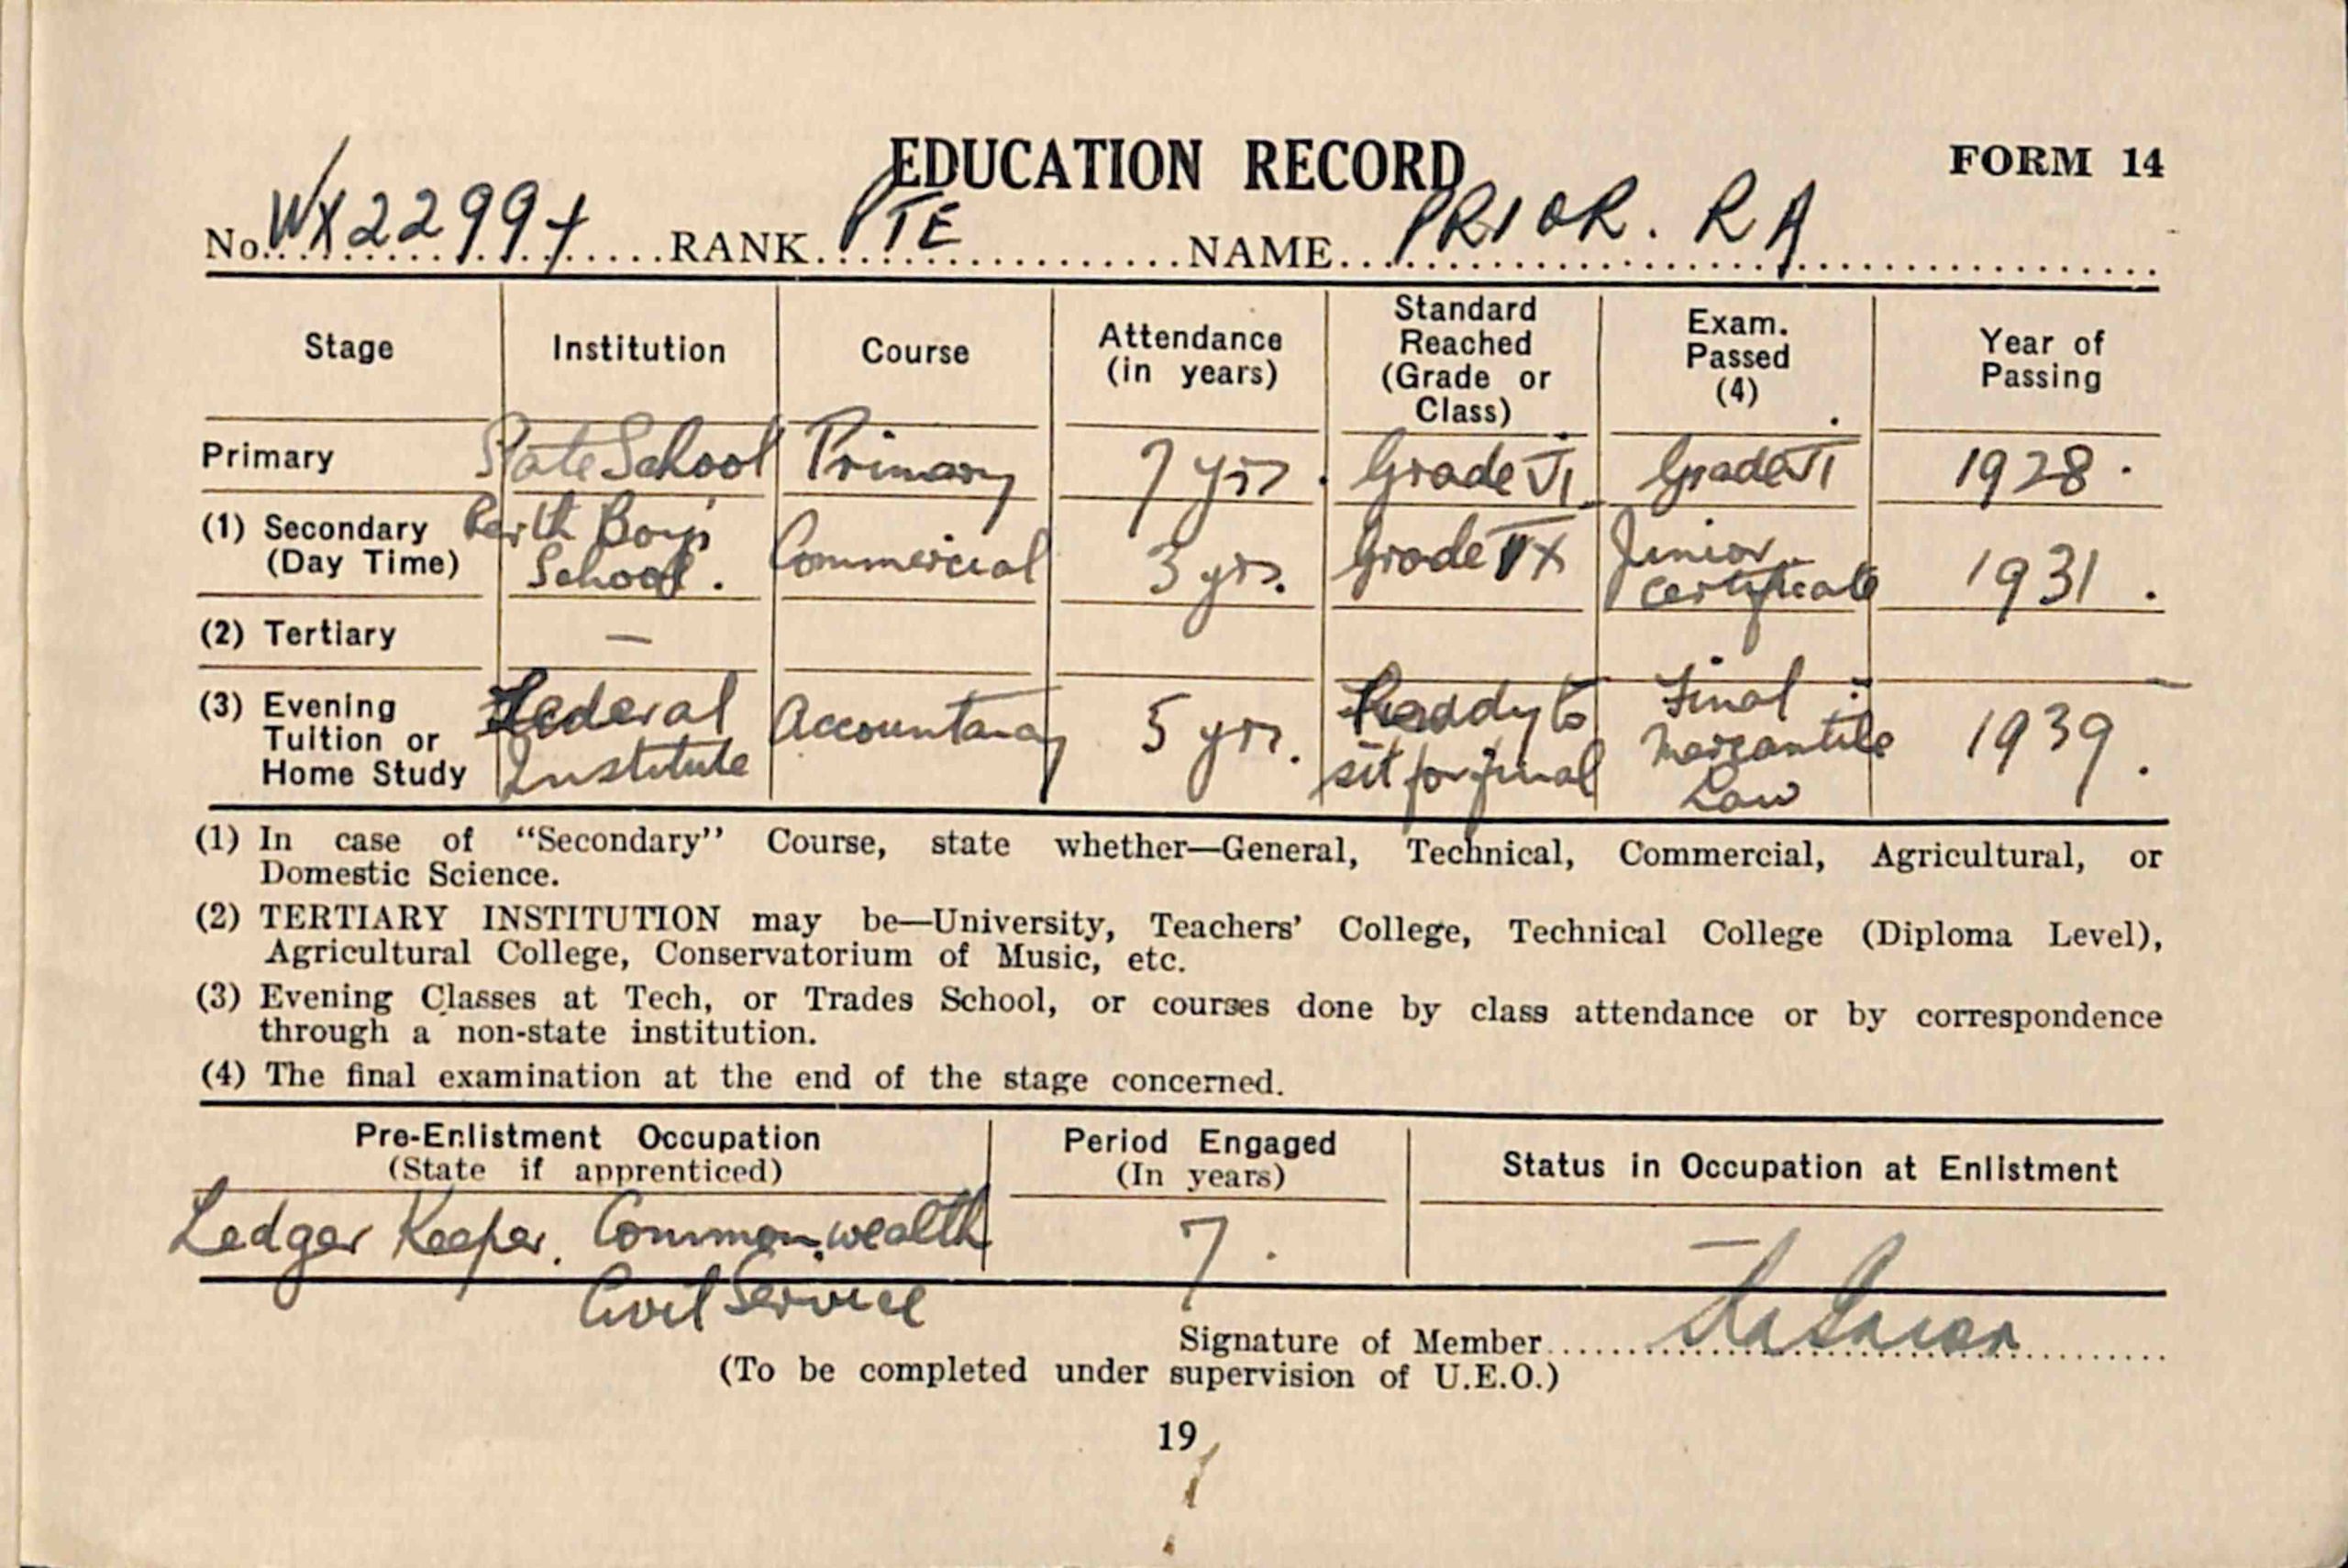 EDUCATION RECORD
FORM 14
No. WX22994 RANK PTE NAME PRIOR. R A
Stage Institution Course Attendance (in years) Standard Reached (Grade or Class) Exam. Passed (4) Year of Passing
Primary State School Primary 7 yrs. Grade VI Grade VI 1928.
(1) Secondary (Day Time) Perth Boys School. Commercial 3 yrs. Grade IX Junior Certificate 1931.
(2) Tertiary —
(3) Evening Tuition or Home Study Federal Institute Accountancy 5 yrs. Ready to sit for final Final Mercantile Law 1939.
(1) In case of “Secondary” Course, state whether—General, Technical, Commercial, Agricultural, or
Domestic Science.
(2) TERTIARY INSTITUTION may be—University, Teachers’ College, Technical College (Diploma Level),
Agricultural College, Conservatorium of Music, etc.
(3) Evening Classes at Tech, or Trades School, or courses done by class attendance or by correspondence
through a non-state institution.
(4) The final examination at the end of the stage concerned.
Pre-Enlistment Occupation (State if apprenticed) Period Engaged (In years) Status in Occupation at Enlistment
Ledger Keeper. Commonwealth 7. —
Civil Service
Signature of Member RA Prior
(To be completed under supervision of U.E.O.)
19